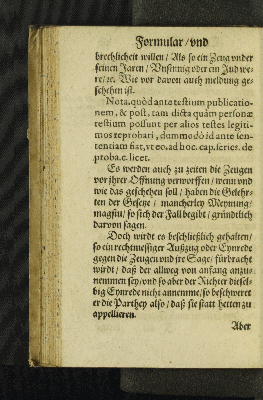 Formular / vnd
brechlicheit willen / Als so ein Zeug vnder
seinen Jaren / Vnsinnig oder ein Jud we-
re / ꝛc. Wie vor davon auch meldung ge-
schehen ist.
Nota, quòd ante testium publicatio-
nem, & post, tam dicta quàm personæ
testium possunt per alios testes legiti-
mos reprobari, dummodò id ante sen-
tentiam fiat, vt eo, ad hoc. cap. series. de
proba. e. licet.
Es werden auch zu zeiten die Zeugen
vor jhrer Öffnung verworffen / wenn vnd
wie das geschehen soll / haben die Gelehr-
ten der Gesetze / mancherley Meynung:
magstu / so sich der Fall begibt / gründtlich
darvon sagen.
Doch wirdt es beschließlich gehalten /
so ein rechtmessiger Außzug oder Eynrede
gegen die Zeugen vnd jre Sage / fürbracht
wirdt / daß der allweg von anfang anzu-
nemmen sey / vnd so aber der Richter diesel-
big Eynrede nicht annemme / so beschweret
er die Parthey also / daß sie statt hetten zu
appellieren.
Aber